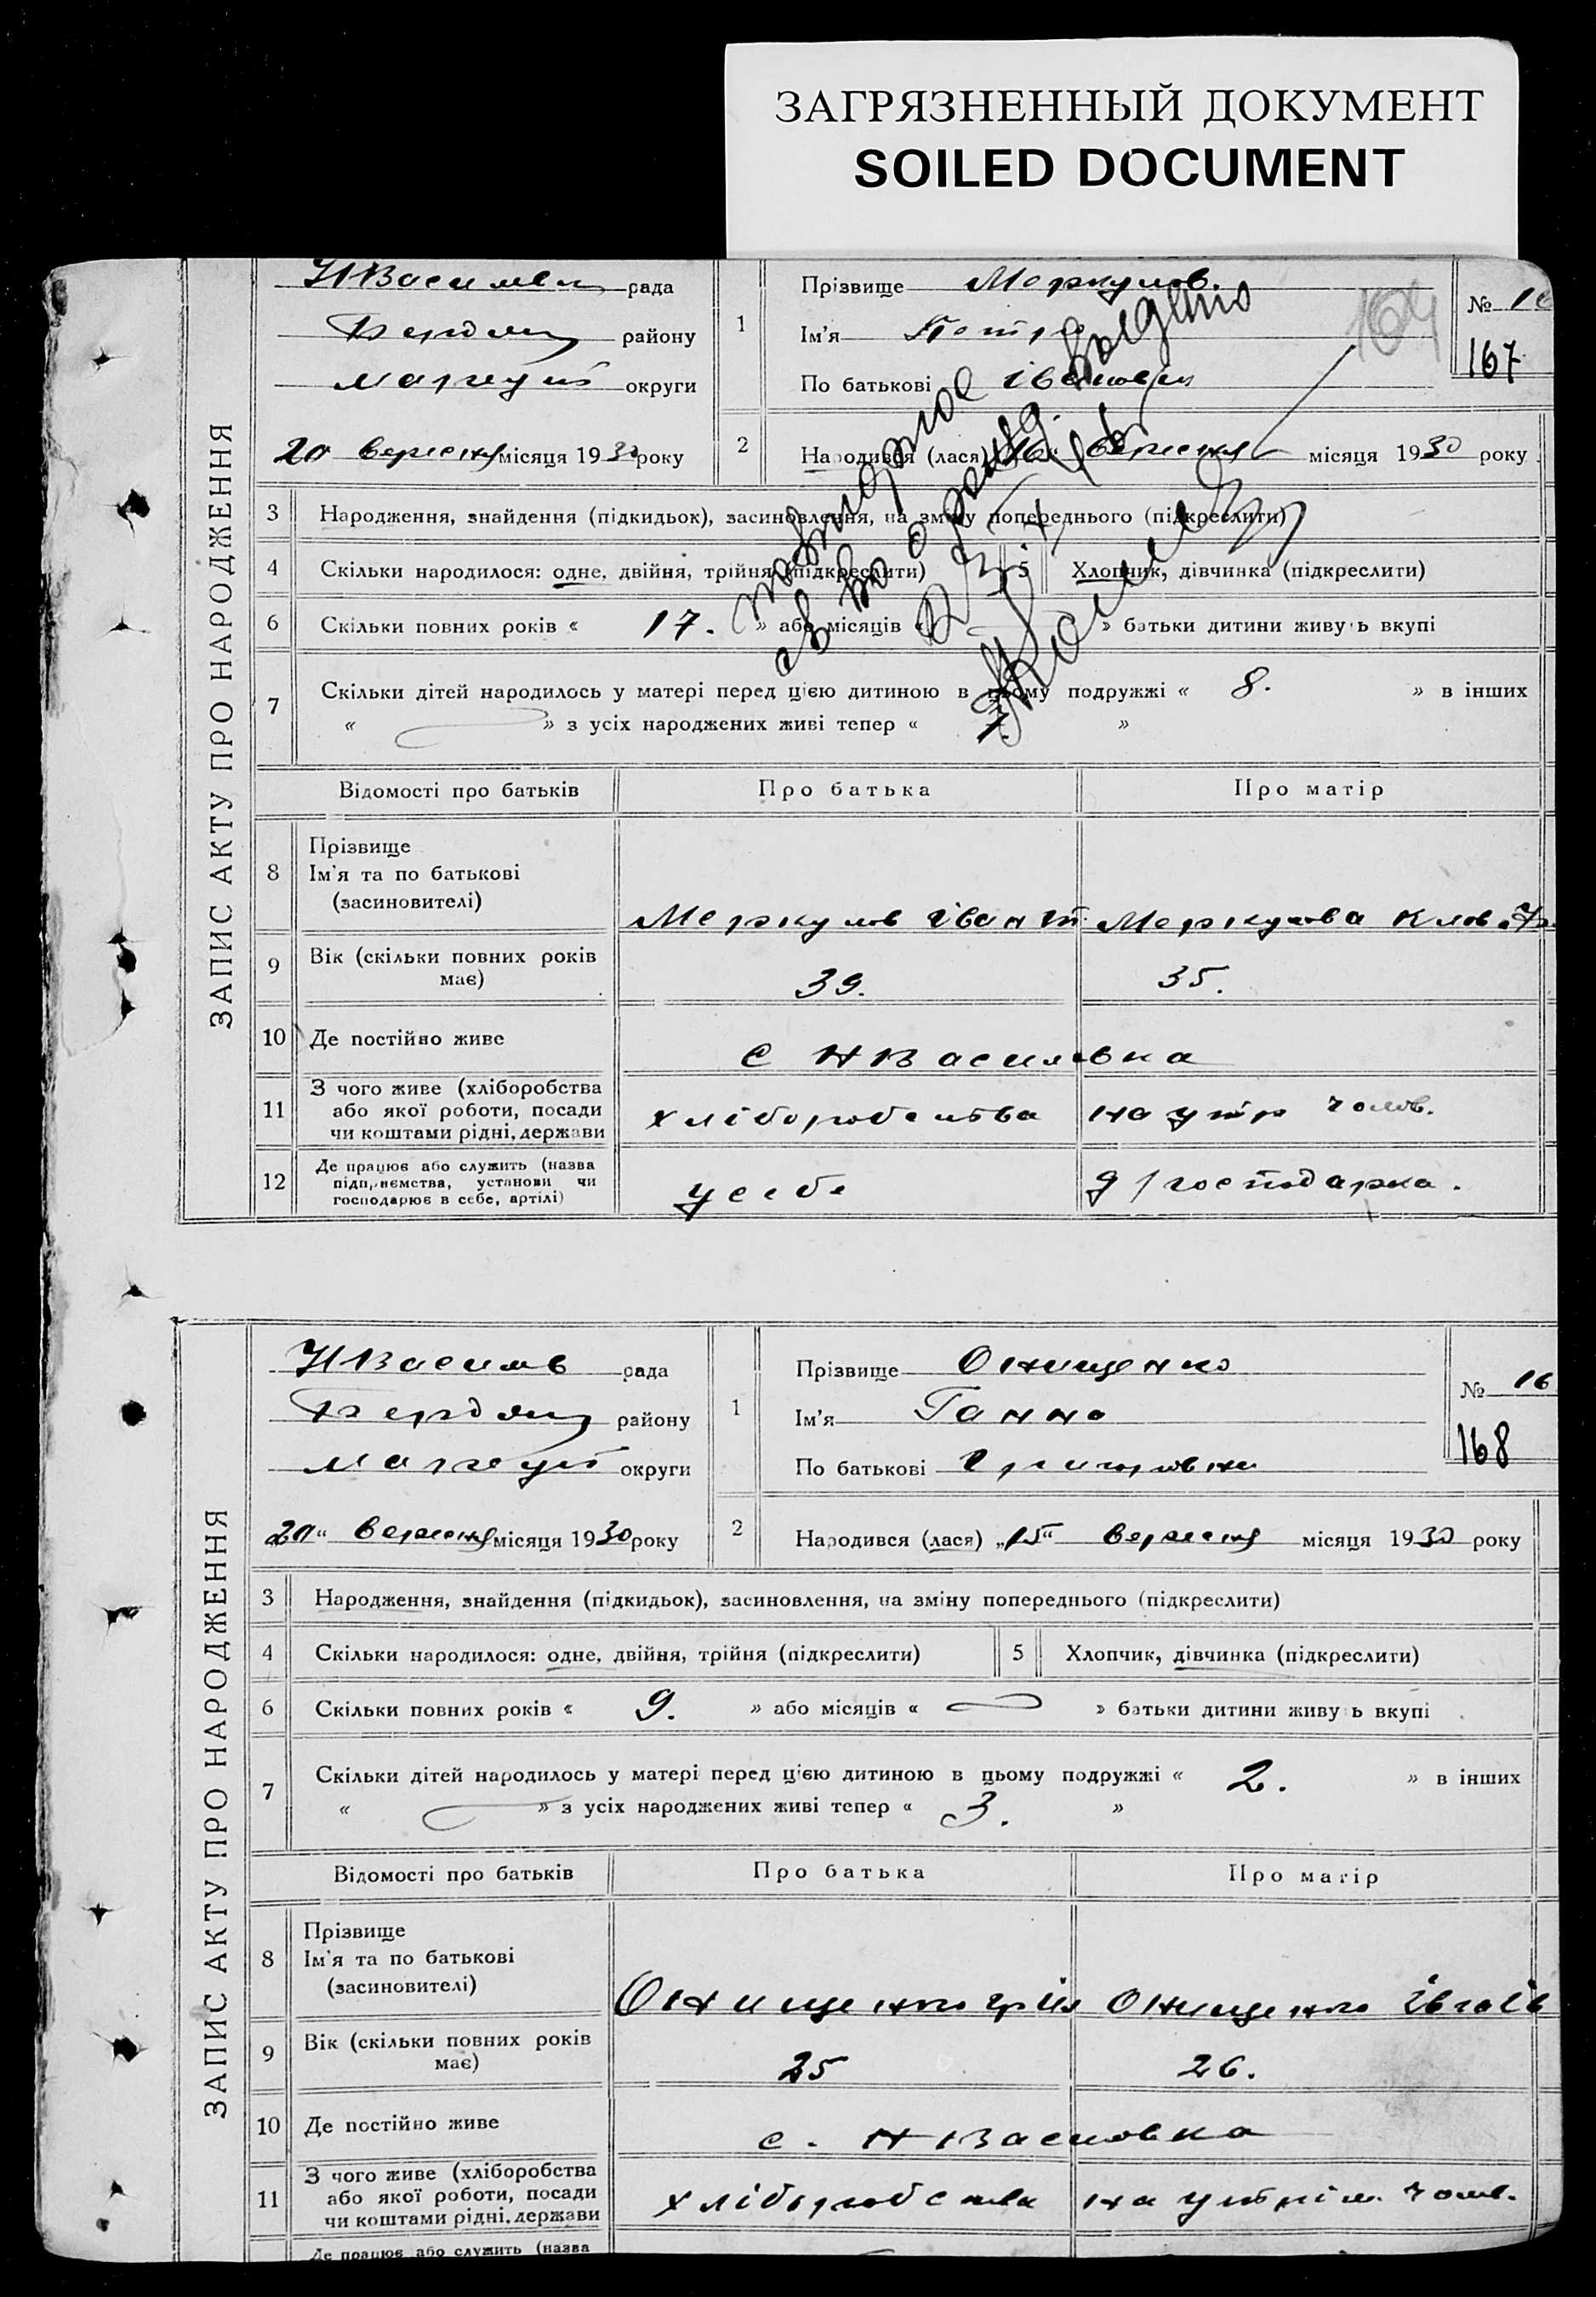 ЗАГРЯЗНЕННЫЙ ДОКУМЕНТ
SOILED DOCUMENT
ЗАПИС АКТУ ПРО НАРОДЖЕННЯ
рада
району
округи
20 вересня місяця 1930 року
1
Прізвище Меркулов.
Ім'я Петро
По батькові Іванович
164
№ 16
167
2
Народився (лася) вересня місяця 1930 року
3 Народження, знайдення (підкидьок), засиновлення, на зміну попереднього (підкреслити)
4 Скільки народилося: одне, двійня, трійня (підкреслити) 5 Хлопчик, дівчинка (підкреслити)
6 Скільки повних років « 17. » або місяців « » батьки дитини живуть вкупі
7 Скільки дітей народилось у матері перед цією дитиною в цьому подружжі « 8. » в інших
« » з усіх народжених живі тепер « 7. »
повторное
выдано
Відомості про батьків Про батька Про матір
8 Прізвище
Ім'я та по батькові
(засиновителі)
Меркулов Іван Меркулова
9 Вік (скільки повних років
має)
39. 35.
10 Де постійно живе
с НВасиловка
11 З чого живе (хліборобства
або якої роботи, посади
чи коштами рідні, держави
хліборобства на утр чолов.
12 Де працює або служить (назва
підприємства, установи чи
господарює в себе, артілі)
у себе д/господарка.
ЗАПИС АКТУ ПРО НАРОДЖЕННЯ
НВасилів рада
району
округи
20" вересня місяця 1930 року
1
Прізвище Онищенко
Ім'я Ганна
По батькові Григоровна
№ 16
168
2
Народився (лася) „15" вересня місяця 1930 року
3 Народження, знайдення (підкидьок), засиновлення, на зміну попереднього (підкреслити)
4 Скільки народилося: одне, двійня, трійня (підкреслити) 5 Хлопчик, дівчинка (підкреслити)
6 Скільки повних років « 9. » або місяців « » батьки дитини живуть вкупі
7 Скільки дітей народилось у матері перед цією дитиною в цьому подружжі « 2. » в інших
« » з усіх народжених живі тепер « 3. »
Відомості про батьків Про батька Про матір
8 Прізвище
Ім'я та по батькові
(засиновителі)
Онищенко Онищенко
9 Вік (скільки повних років
має)
25 26.
10 Де постійно живе
с. НВасиловка
11 З чого живе (хліборобства
або якої роботи, посади
чи коштами рідні, держави
хліборобства на утрим. чолов.
Де працює або служить (назва